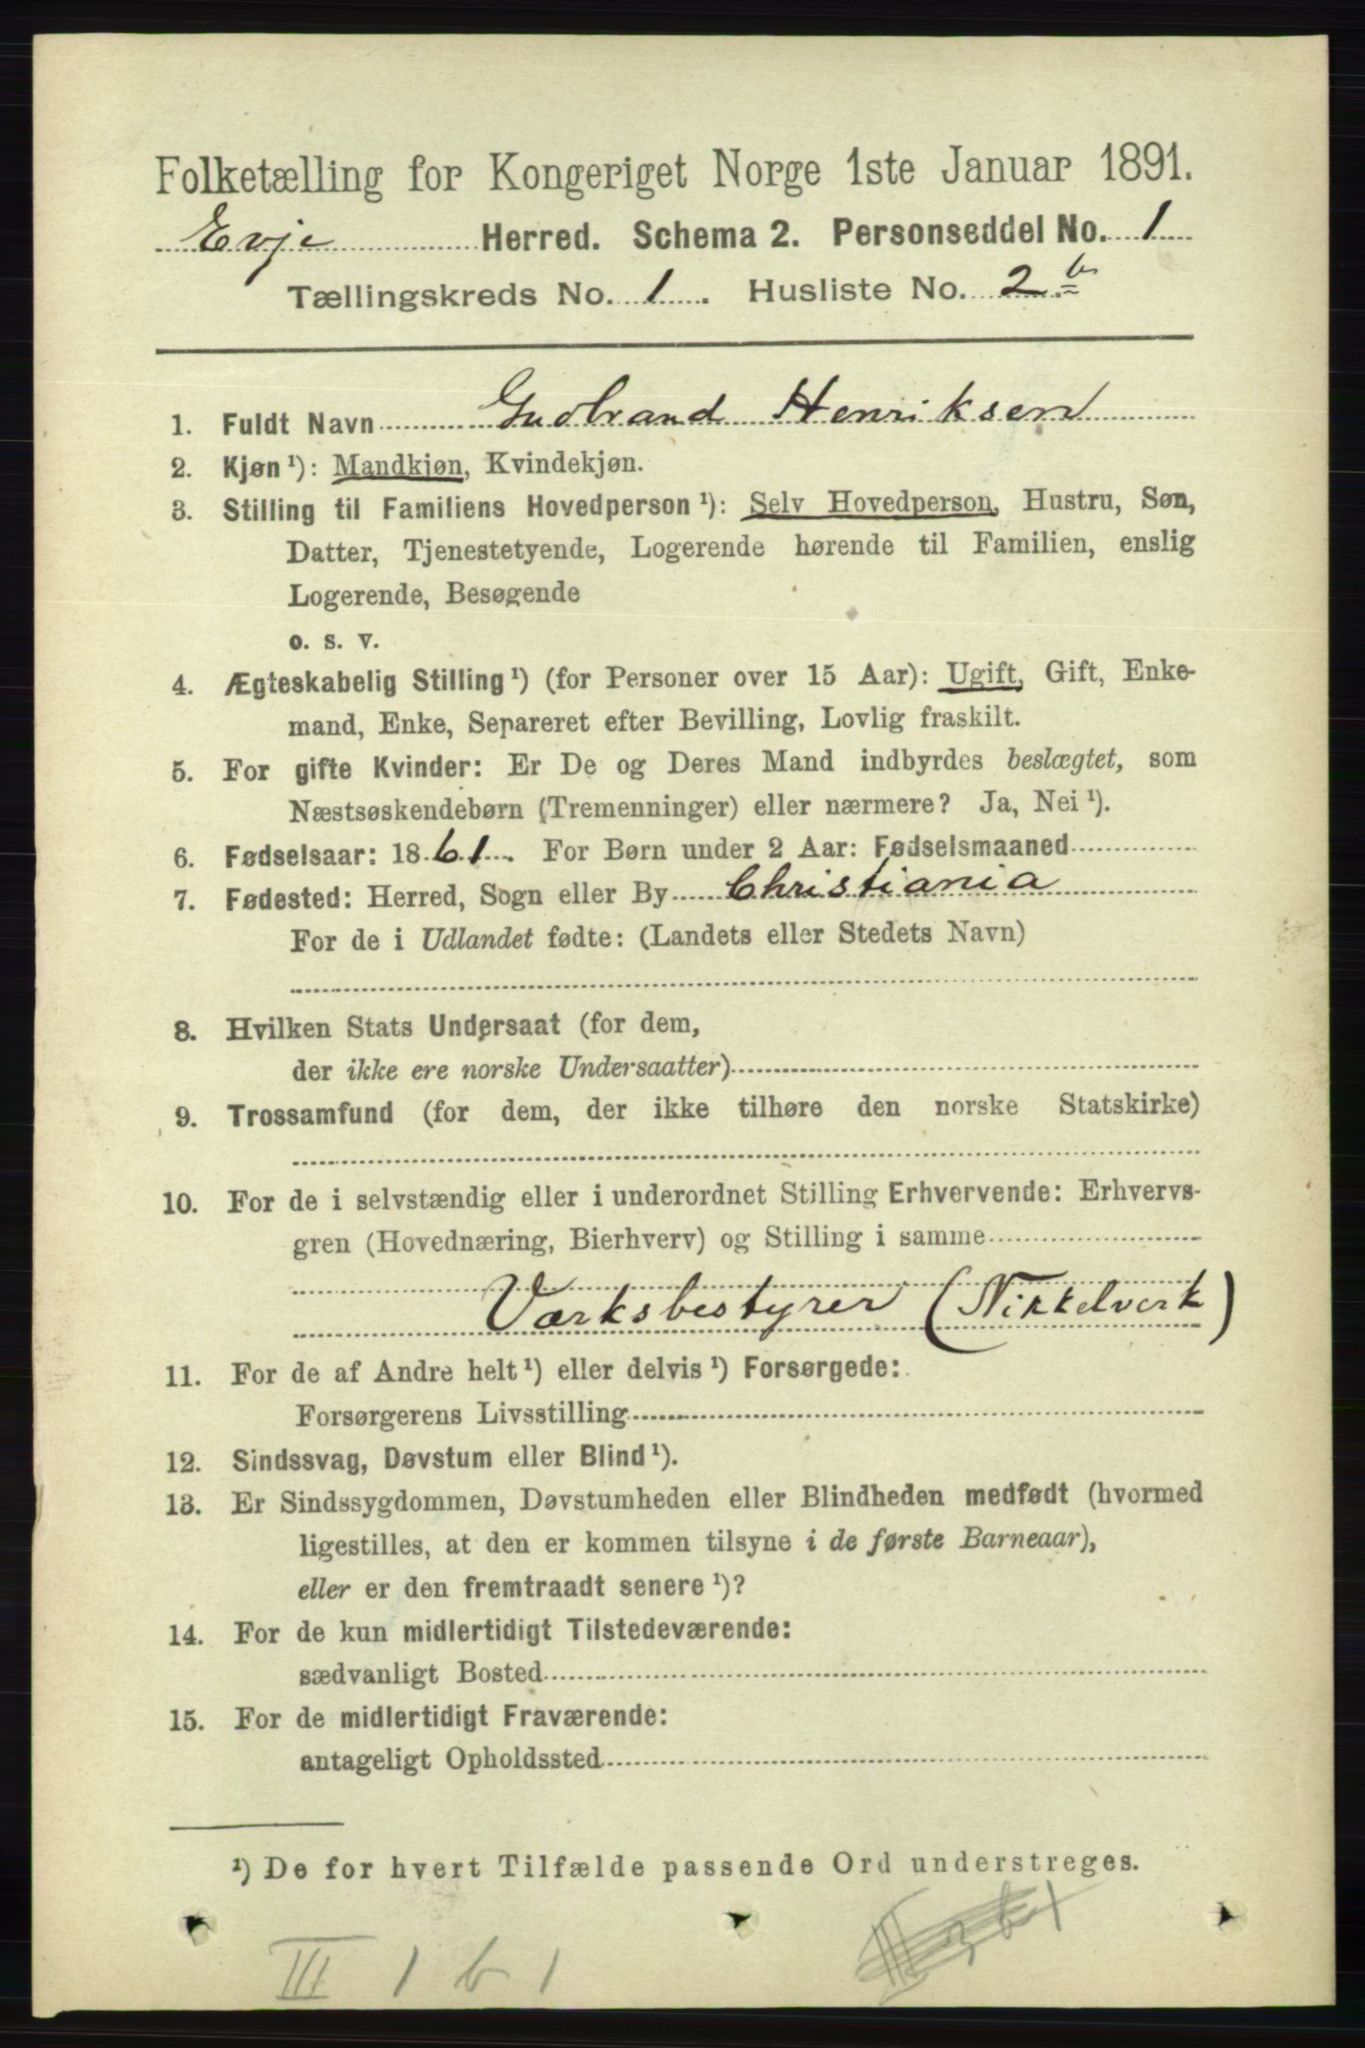 Folketælling for Kongeriget Norge 1ste Januar 1891.
Evje Herred. Schema 2. Personseddel No. 1
Tællingskreds No. 1. Husliste No. 2 b
1. Fuldt Navn Gudbrand Henriksen
2. Kjøn ¹): Mandkjøn, Kvindekjøn.
3. Stilling til Familiens Hovedperson ¹): Selv Hovedperson, Hustru, Søn,
Datter, Tjenestetyende, Logerende hørende til Familien, enslig
Logerende, Besøgende
o. s. v.
4. Ægteskabelig Stilling ¹) (for Personer over 15 Aar): Ugift, Gift, Enke-
mand, Enke, Separeret efter Bevilling, Lovlig fraskilt.
5. For gifte Kvinder: Er De og Deres Mand indbyrdes beslægtet, som
Næstsøskendebørn (Tremenninger) eller nærmere? Ja, Nei ¹).
6. Fødselsaar: 1861. For Børn under 2 Aar: Fødselsmaaned
7. Fødested: Herred, Sogn eller By Christiania
For de i Udlandet fødte: (Landets eller Stedets Navn)
8. Hvilken Stats Undersaat (for dem,
der ikke ere norske Undersaatter)
9. Trossamfund (for dem, der ikke tilhøre den norske Statskirke)
10. For de i selvstændig eller i underordnet Stilling Erhvervende: Erhvervs-
gren (Hovednæring, Bierhverv) og Stilling i samme
Værksbestyrer (Nikkelverk)
11. For de af Andre helt ¹) eller delvis ¹) Forsørgede:
Forsørgerens Livsstilling
12. Sindssvag, Døvstum eller Blind ¹).
13. Er Sindssygdommen, Døvstumheden eller Blindheden medfødt (hvormed
ligestilles, at den er kommen tilsyne i de første Barneaar),
eller er den fremtraadt senere ¹)?
14. For de kun midlertidigt Tilstedeværende:
sædvanligt Bosted
15. For de midlertidigt Fraværende:
antageligt Opholdssted
¹) De for hvert Tilfælde passende Ord understreges.
III 1 b 1